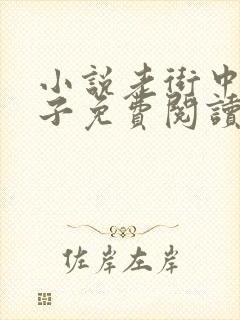 小說老街中
子免費閱讀
佐岸左岸